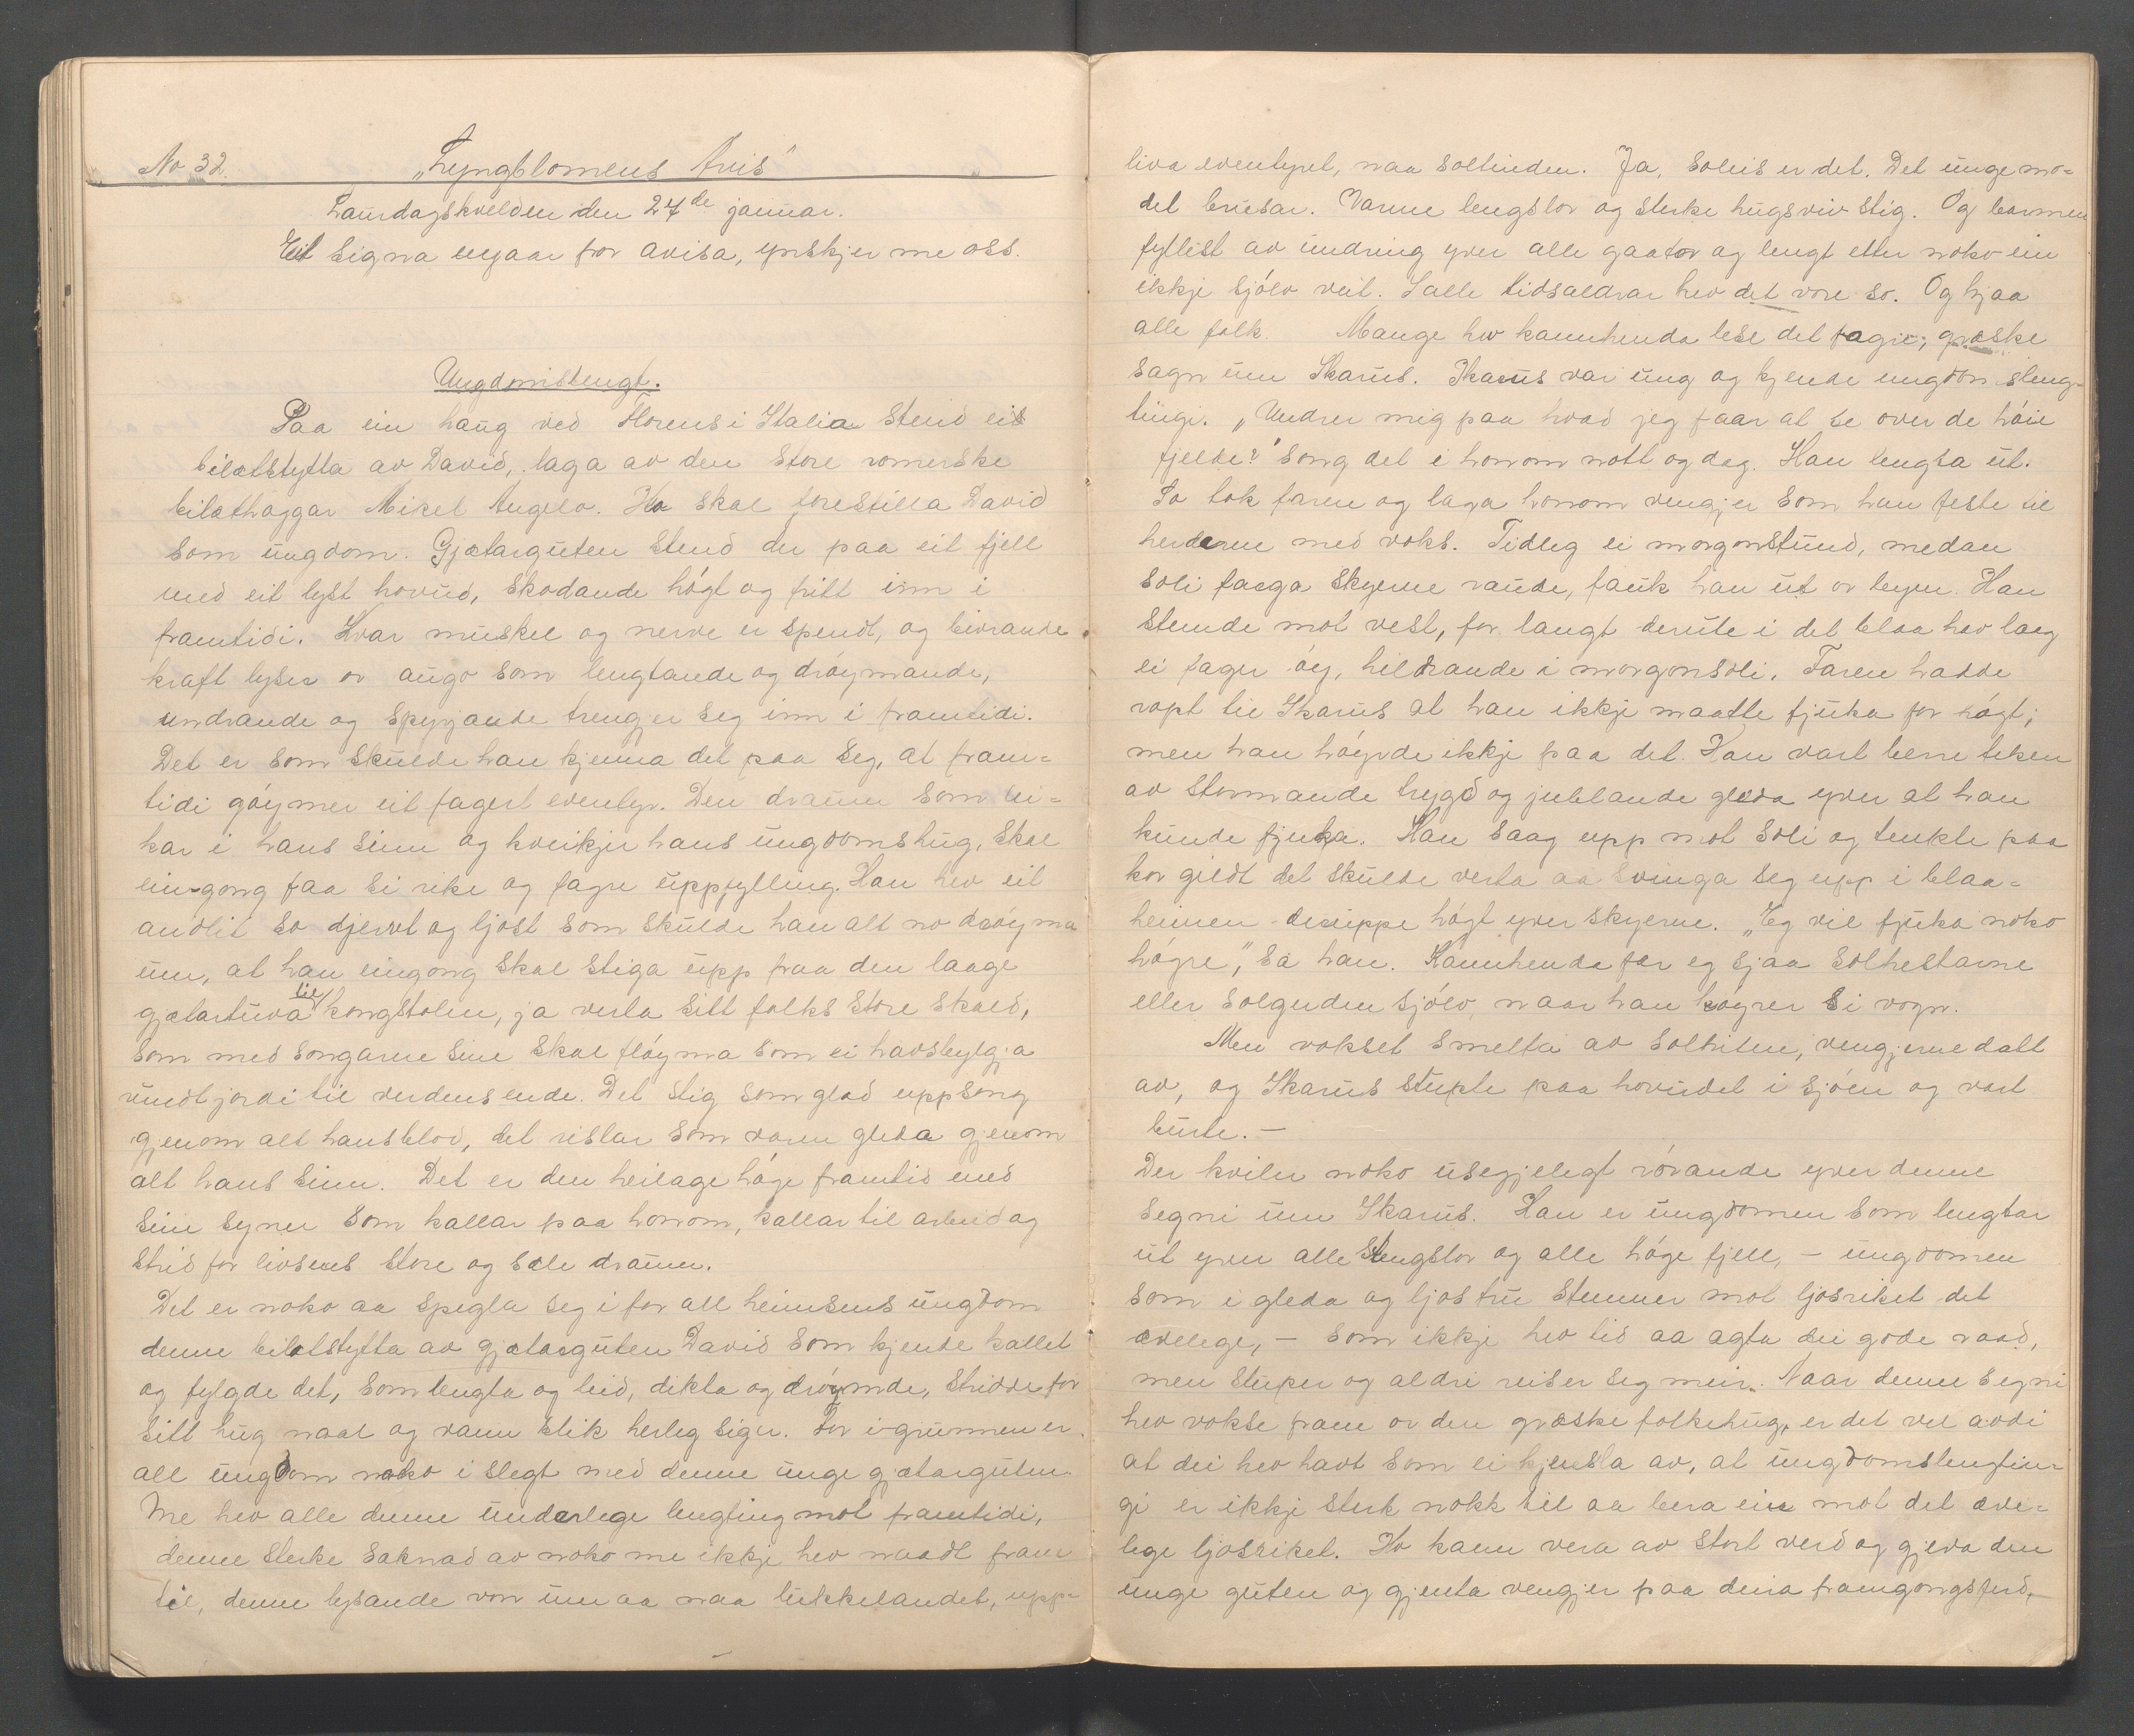 No 32. „Lyngblomens Avis"
Laurdagskvelden den 27de januar.
Eit signa nyaar for avisa, ynskjer me oss.
Ungdomslengt.
Paa ein haug ved Florens i Italia stend eit
bilætstytta av David, laga av den store romerske
bilæthøggar Mikel Angelo. Ho skal forestilla David
som ungdom. Gjætarguten stend der paa eit fjell
med eit lyst hovud, skodande høgt og fritt inn i
framtidi. Kvar muskel og nerve er spendt, og bivrande
kraft lyser or augo som lengtande og drøymande,
undrande og spyrjande trengjer seg inn i framtidi.
Det er som skulde han kjenna det paa seg, at fram-
tidi gøymer eit fagert eventyr. Den draum som vi-
kar i hans sinn og kveikjer hans ungdomshug, skal
eingong faa si rike og fagre uppfylling. Han hev eit
andlit so djervt og ljost som skulde han alt no drøyma
um, at han eingong skal stiga upp fraa den laage
gjætartuva til kongstolen, ja verta sitt folks store skald,
som med songarne sine skal fløyma som ei havsbylgja
rundt jordi til verdens ende. Det stig som glad uppsong
gjenom alt hans blod, det rislar som varm gleda gjenom
alt hans sinn. Det er den heilage høge framtid med
sine syner som kallar paa honom, kallar til arbeid og
strid for livsens store og sæle draum.
Det er noko aa spegla seg i for all heimsens ungdom
denne bilætstytta av gjætarguten David som kjende kallet
og fylgde det, som lengta og leid, dikta og drøymde, stridde for
sitt hug maal og vann slik herleg siger. For i grunnen er
all ungdom noko i slegt med denne unge gjætarguten.
Me hev alle denne underlege lengting mot framtidi,
denne sterke saknad av noko me ikkje hev naadt fram
til, denne lysande von um aa naa lukkelandet, upp-
liva eventyret, naa soltinden. Ja, soleis er det. Det unge mo-
det brusar. Varme lengslor og sterke hugsviv stig. Og barmen
fyllest av undring yver alle gaator og lengt etter noko ein
ikkje sjølv veit. I alle tidsaldrar hev det vore so. Og hjaa
alle folk. Mange hev kannhenda lese det fagre, græske
sagn um Ikarus. Ikarus var ung og kjende ungdomsleng-
tingi. „Undrer mig paa hvad jeg faar at se over de høie
fjelde?" song det i honom nott og dag. Han lengta ut.
So tok faren og laga honom vengjer som han feste til
herdarne med voks. Tidleg ei morgonstund, medan
soli farga skyerne raude, fauk han ut or byen. Han
stemde mot vest, for langt derute i det blaa hav laag
ei fager øy, hildrande i morgonsoli. Faren hadde
ropt til Ikarus at han ikkje maatte fjuka for høgt;
men han høyrde ikkje paa det. Han vart berre teken
av stormande trygd og jublande gleda yver at han
kunde fjuka. Han saag upp mot soli og tenkte paa
kor gildt det skulde verta aa svinga seg upp i blaa-
heimen deruppe høgt yver skyerne. „Eg vil fjuka noko
høgre", sa han. Kannhenda fær eg sjaa solhestarne
eller solguden sjølv, naar han køyrer si vogn.
Men vokset smelta av solhiten, vengjerne datt
av, og Ikarus stupte paa hovudet i sjøen og vart
burte. —
Der kviler noko usegjelegt rørande yver denne
segni um Ikarus. Han er ungdomen som lengtar
ut yver alle stengslor og alle høge fjell, — ungdomen
som i gleda og ljos tru stemner mot ljosriket det
ævelege, — som ikkje hev tid aa agta dei gode raad,
men stuper og aldri reiser seg meir. Naar denne segni
hev vokse fram or den græske folkehug, er det vel avdi
at dei hev havt som ei kjensla av, at ungdomslengtin-
gi er ikkje sterk nokk til aa bera ein mot det æve-
lege ljosriket. Ho kann vera av stort verd og gjeva den
unge guten og gjenta vengjer paa deira framgongsferd,—